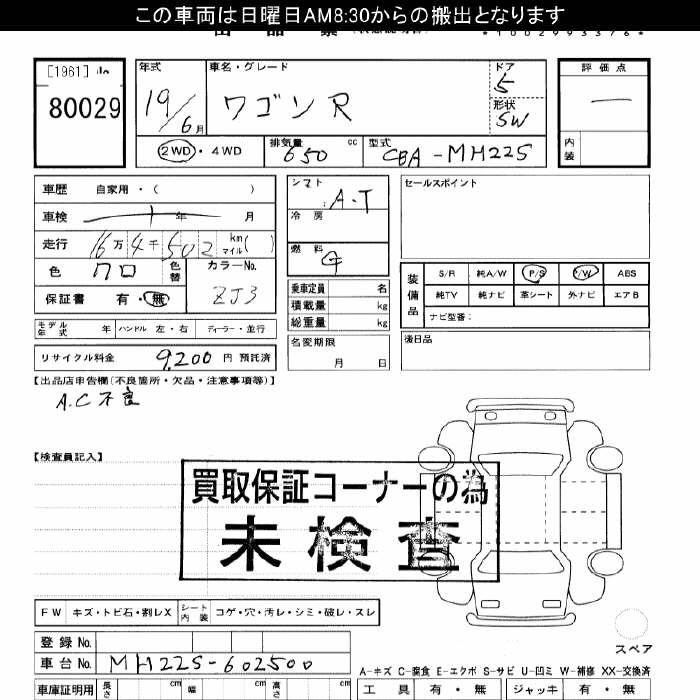 この車両は日曜日AM8:30からの搬出となります
*1002993376*
[1961]
80029
年式
19/6月
車名・グレード
ワゴンR
ドア
5
形状
SW
評価点
内装
2WD・4WD
排気量 650 cc
型式 CBA-MH22S
車歴 自家用・( )
車検 年 月
走行 16万4千502 km マイル( )
色 クロ 色替
カラーNo. ZJ3
保証書 有・無
シフト A・T
冷房
燃料 G
セールスポイント
乗車定員 名
積載量 kg
総重量 kg
装備品
S/R 純A/W P/S P/W ABS
純TV 純ナビ 革シート 外ナビ エアB
ナビ型番:
モデル年式 年 ハンドル 左・右 ディーラー・並行
名変期限 月 日
後日品
リサイクル料金 9,200 円 預託済
【出品店申告欄(不良箇所・欠品・注意事項等)】
A.C不良
【検査員記入】
買取保証コーナーの為
未検査
FW キズ・トビ石・割レX シート内装 コゲ・穴・汚レ・シミ・破レ・スレ
スペア
登録No.
車台No. MH22S-602500
A-キズ C-腐食 E-エクボ S-サビ U-凹ミ W-補修 XX-交換済
車庫証明用 長さ cm 幅 cm 高さ cm
工具 有・無 ジャッキ 有・無